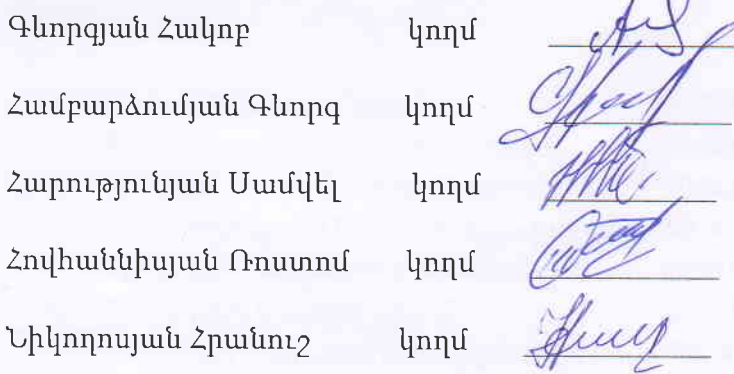 Գևորգյան Հակոբ կողմ
Համբարձումյան Գևորգ կողմ
Հարությունյան Սամվել կողմ
Հովհաննիսյան Ռոստոմ կողմ
Նիկողոսյան Հրանուշ կողմ